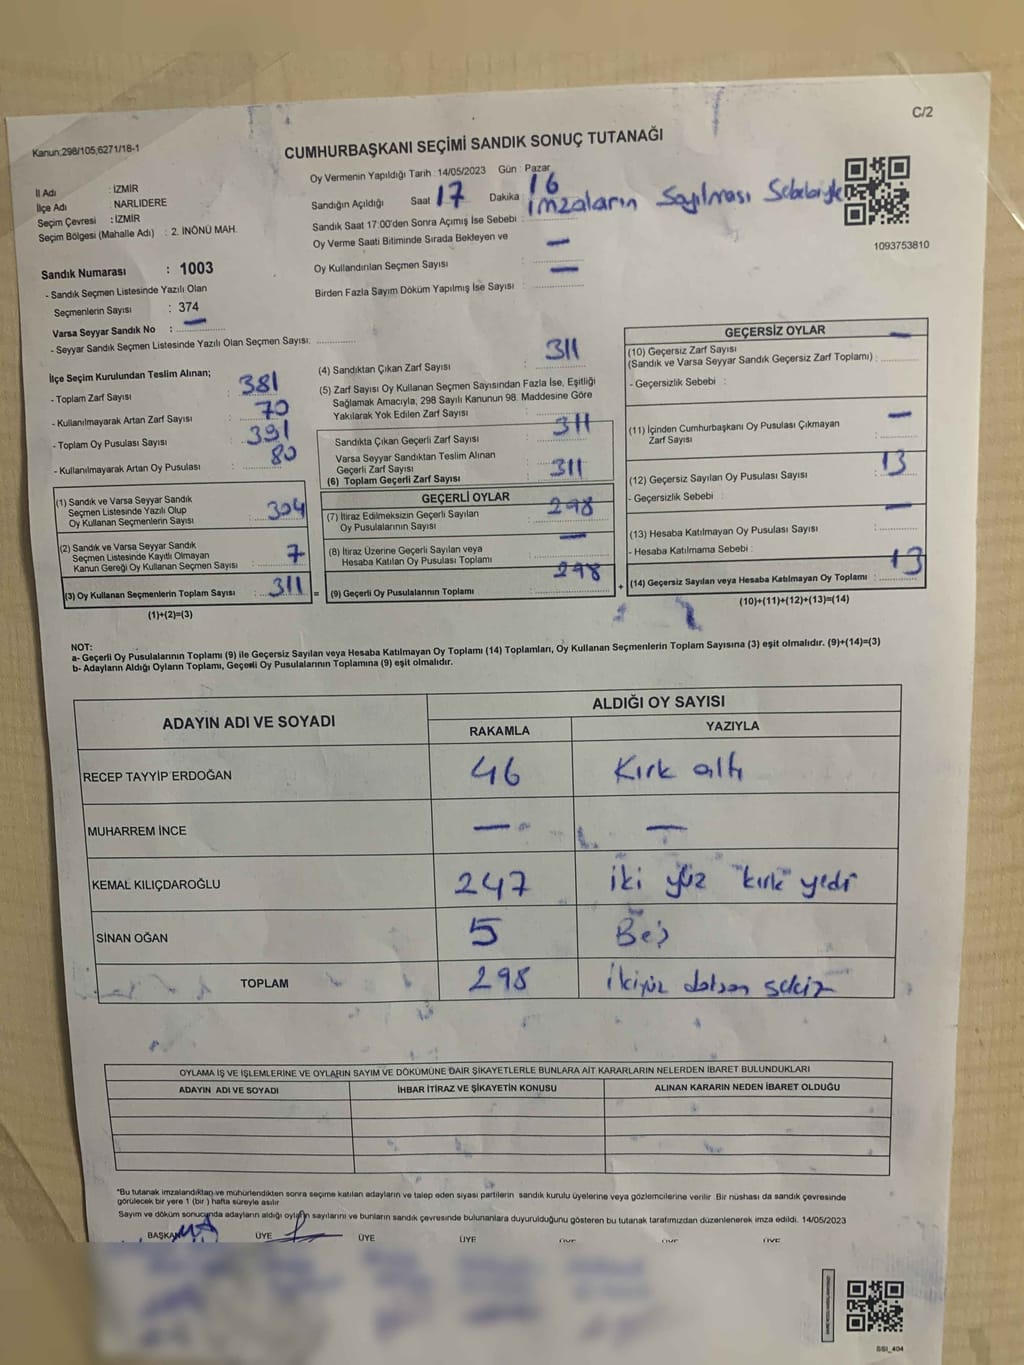 C/2
Kanun:298/105,6271/18-1
CUMHURBAŞKANI SEÇİMİ SANDIK SONUÇ TUTANAĞI
İl Adı : İZMİR
İlçe Adı : NARLIDERE
Seçim Çevresi : İZMİR
Seçim Bölgesi (Mahalle Adı) : 2. İNÖNÜ MAH.
Oy Vermenin Yapıldığı Tarih : 14/05/2023 Gün : Pazar
Sandığın Açıldığı Saat 17 Dakika 16
Sandık Saat 17:00'den Sonra Açımış İse Sebebi : İmzaların Sayılması Sebebiyle
Oy Verme Saati Bitiminde Sırada Bekleyen ve
Oy Kullandırılan Seçmen Sayısı : —
Birden Fazla Sayım Döküm Yapılmış İse Sayısı : —
1093753810
Sandık Numarası : 1003
- Sandık Seçmen Listesinde Yazılı Olan
Seçmenlerin Sayısı : 374
Varsa Seyyar Sandık No : —
- Seyyar Sandık Seçmen Listesinde Yazılı Olan Seçmen Sayısı:
İlçe Seçim Kurulundan Teslim Alınan;
- Toplam Zarf Sayısı : 381
- Kullanılmayarak Artan Zarf Sayısı : 70
- Toplam Oy Pusulası Sayısı : 391
- Kullanılmayarak Artan Oy Pusulası : 80
(1) Sandık ve Varsa Seyyar Sandık
Seçmen Listesinde Yazılı Olup
Oy Kullanan Seçmenlerin Sayısı : 304
(2) Sandık ve Varsa Seyyar Sandık
Seçmen Listesinde Kayıtlı Olmayan
Kanun Gereği Oy Kullanan Seçmen Sayısı : 7
(3) Oy Kullanan Seçmenlerin Toplam Sayısı : 311
(1)+(2)=(3)
(4) Sandıktan Çıkan Zarf Sayısı : 311
(5) Zarf Sayısı Oy Kullanan Seçmen Sayısından Fazla İse, Eşitliği
Sağlamak Amacıyla, 298 Sayılı Kanunun 98. Maddesine Göre
Yakılarak Yok Edilen Zarf Sayısı :
Sandıkta Çıkan Geçerli Zarf Sayısı : 311
Varsa Seyyar Sandıktan Teslim Alınan
Geçerli Zarf Sayısı
(6) Toplam Geçerli Zarf Sayısı : 311
GEÇERLİ OYLAR
(7) İtiraz Edilmeksizin Geçerli Sayılan
Oy Pusulalarının Sayısı : 298
(8) İtiraz Üzerine Geçerli Sayılan veya
Hesaba Katılan Oy Pusulası Toplamı : —
= (9) Geçerli Oy Pusulalarının Toplamı : 298 +
GEÇERSİZ OYLAR
(10) Geçersiz Zarf Sayısı
(Sandık ve Varsa Seyyar Sandık Geçersiz Zarf Toplamı) : —
- Geçersizlik Sebebi :
(11) İçinden Cumhurbaşkanı Oy Pusulası Çıkmayan
Zarf Sayısı : —
(12) Geçersiz Sayılan Oy Pusulası Sayısı : 13
- Geçersizlik Sebebi :
(13) Hesaba Katılmayan Oy Pusulası Sayısı : —
- Hesaba Katılmama Sebebi :
(14) Geçersiz Sayılan veya Hesaba Katılmayan Oy Toplamı : 13
(10)+(11)+(12)+(13)=(14)
NOT:
a- Geçerli Oy Pusulalarının Toplamı (9) ile Geçersiz Sayılan veya Hesaba Katılmayan Oy Toplamı (14) Toplamları, Oy Kullanan Seçmenlerin Toplam Sayısına (3) eşit olmalıdır. (9)+(14)=(3)
b- Adayların Aldığı Oyların Toplamı, Geçerli Oy Pusulalarının Toplamına (9) eşit olmalıdır.
ADAYIN ADI VE SOYADI ALDIĞI OY SAYISI
RAKAMLA YAZIYLA
RECEP TAYYİP ERDOĞAN 46 Kırk altı
MUHARREM İNCE — —
KEMAL KILIÇDAROĞLU 247 iki yüz "kırk" yedi
SİNAN OĞAN 5 Beş
TOPLAM 298 ikiyüz doksan sekiz
OYLAMA İŞ VE İŞLEMLERİNE VE OYLARIN SAYIM VE DÖKÜMÜNE DAİR ŞİKAYETLERLE BUNLARA AİT KARARLARIN NELERDEN İBARET BULUNDUKLARI
ADAYIN ADI VE SOYADI İHBAR İTİRAZ VE ŞİKAYETİN KONUSU ALINAN KARARIN NEDEN İBARET OLDUĞU
*Bu tutanak imzalandıktan ve mühürlendikten sonra seçime katılan adayların ve talep eden siyasi partilerin sandık kurulu üyelerine veya gözlemcilerine verilir. Bir nüshası da sandık çevresinde
görülecek bir yere 1 (bir ) hafta süreyle asılır
Sayım ve döküm sonucunda adayların aldığı oyların sayılarını ve bunların sandık çevresinde bulunanlara duyurulduğunu gösteren bu tutanak tarafımızdan düzenlenerek imza edildi. 14/05/2023
BAŞKAN ÜYE ÜYE ÜYE ÜYE ÜYE ÜYE
SSI_404